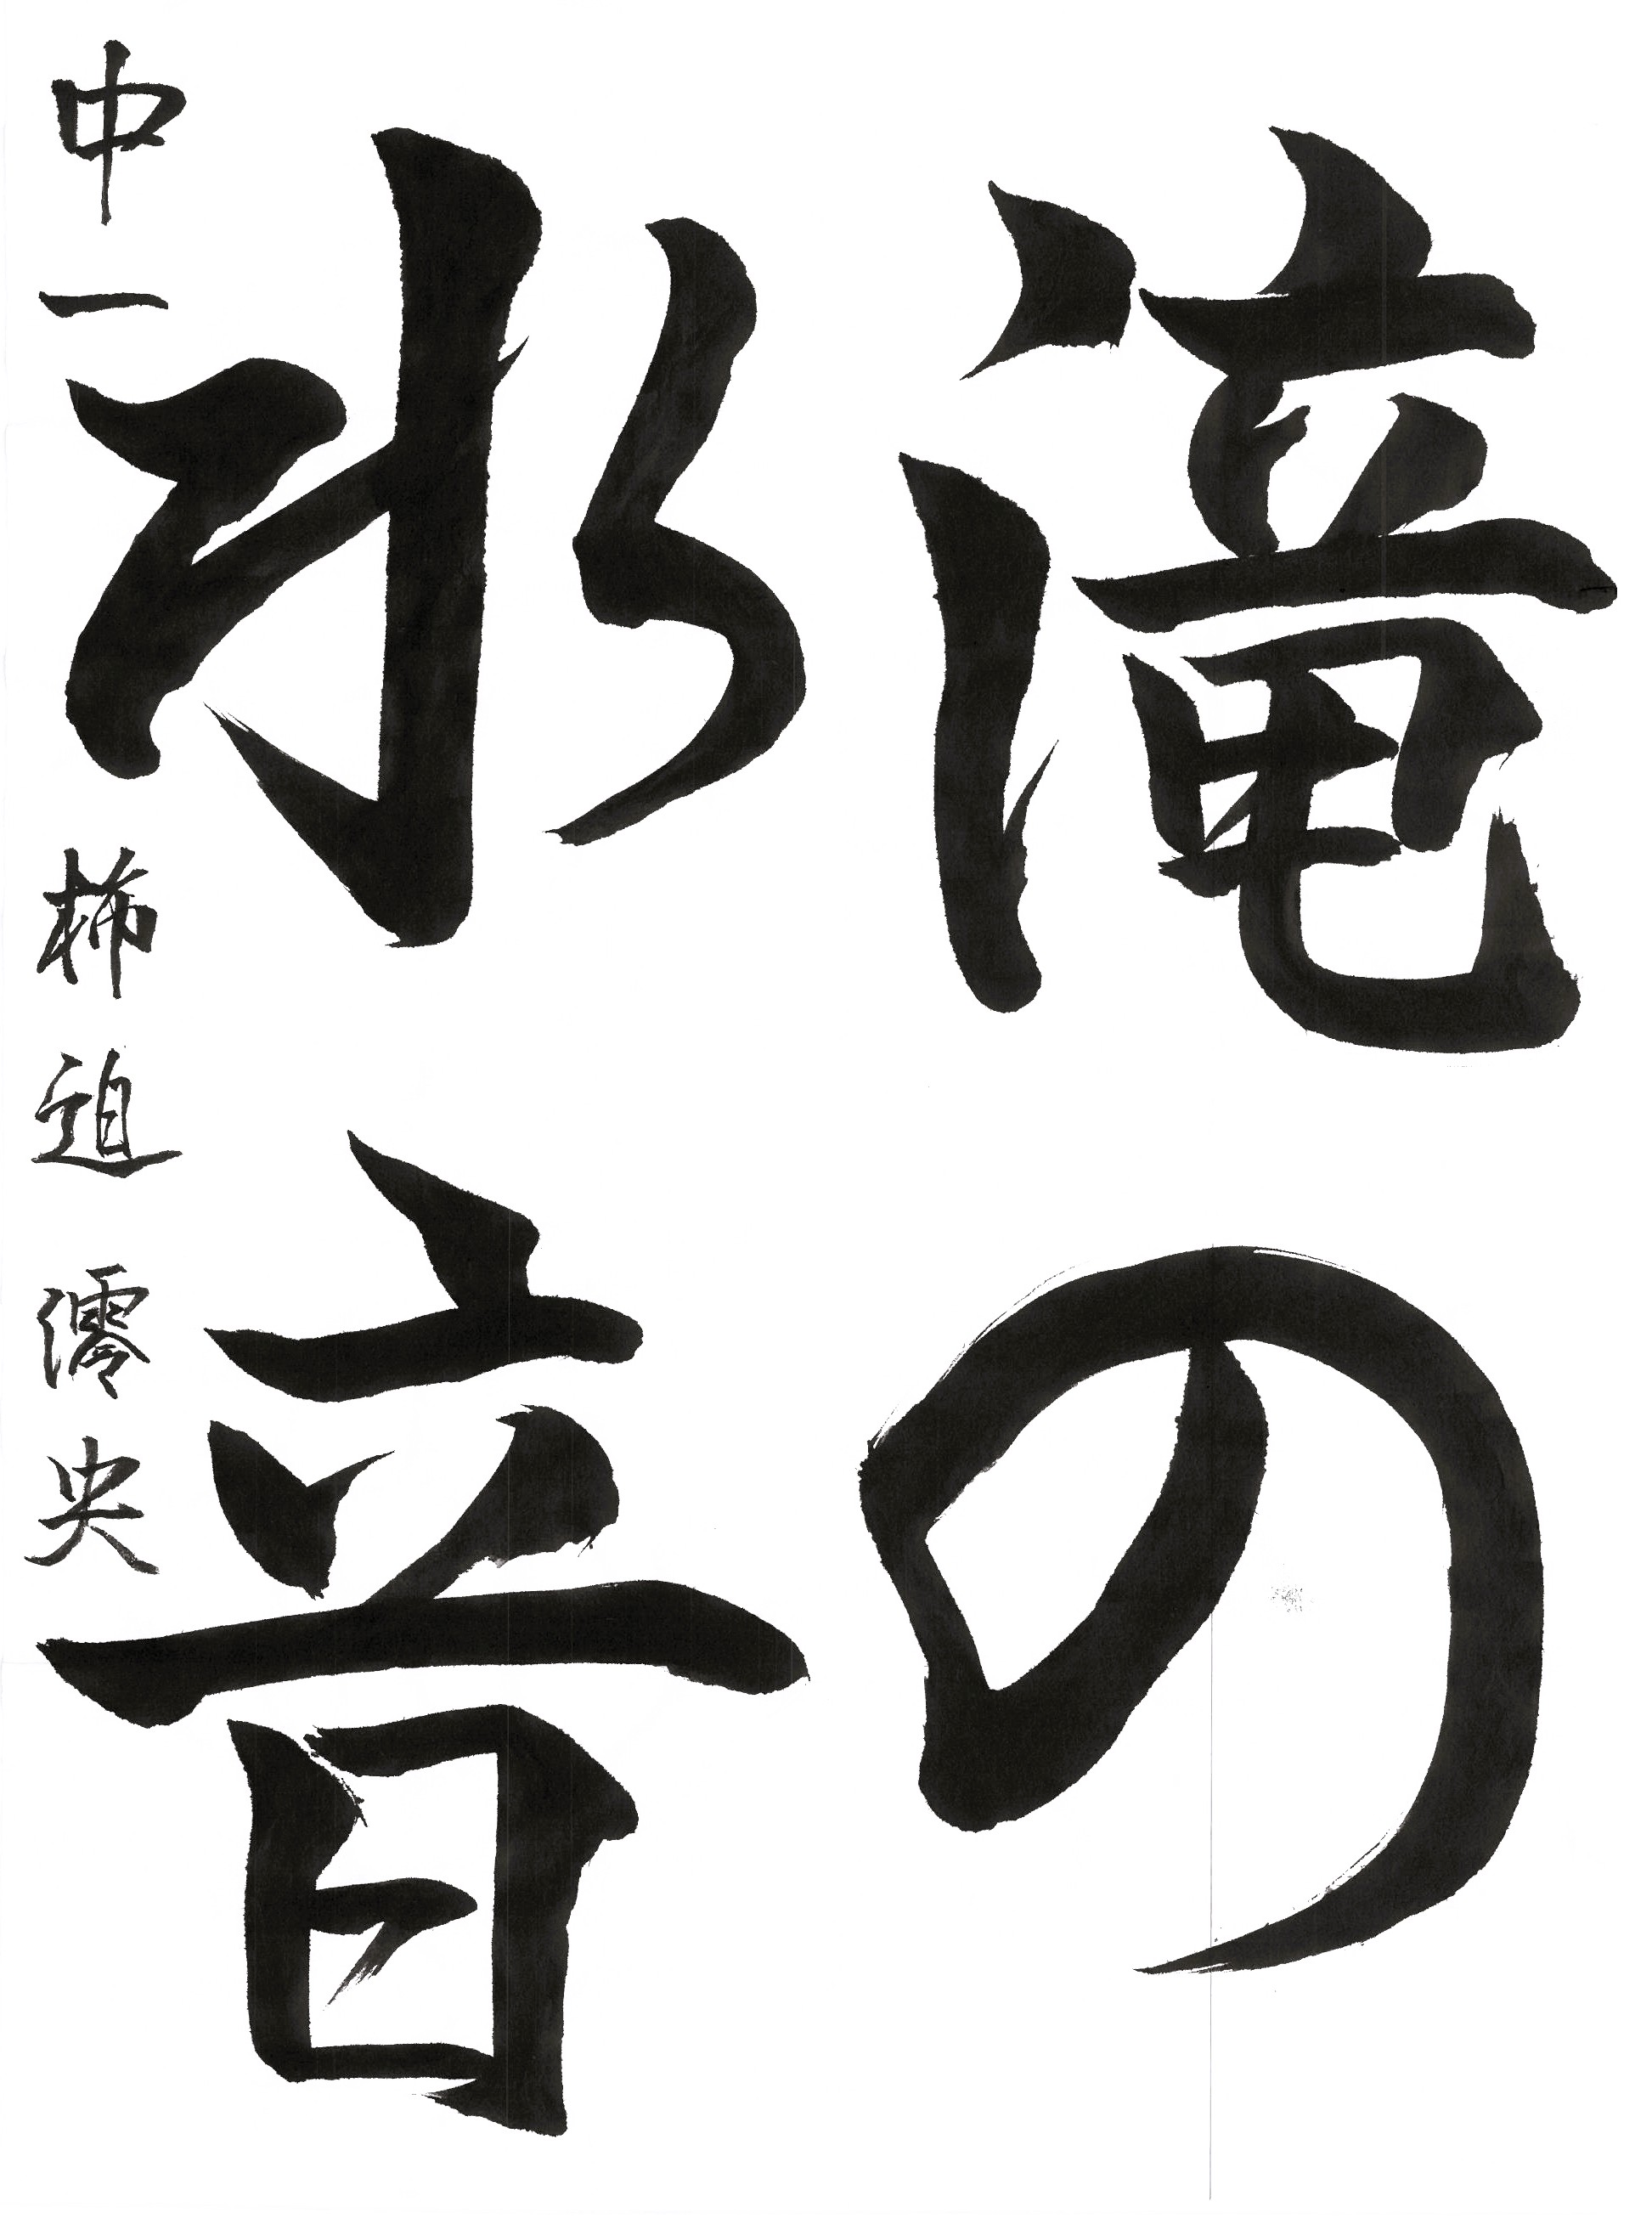 滝の
水音
中一 柿迫 澪央